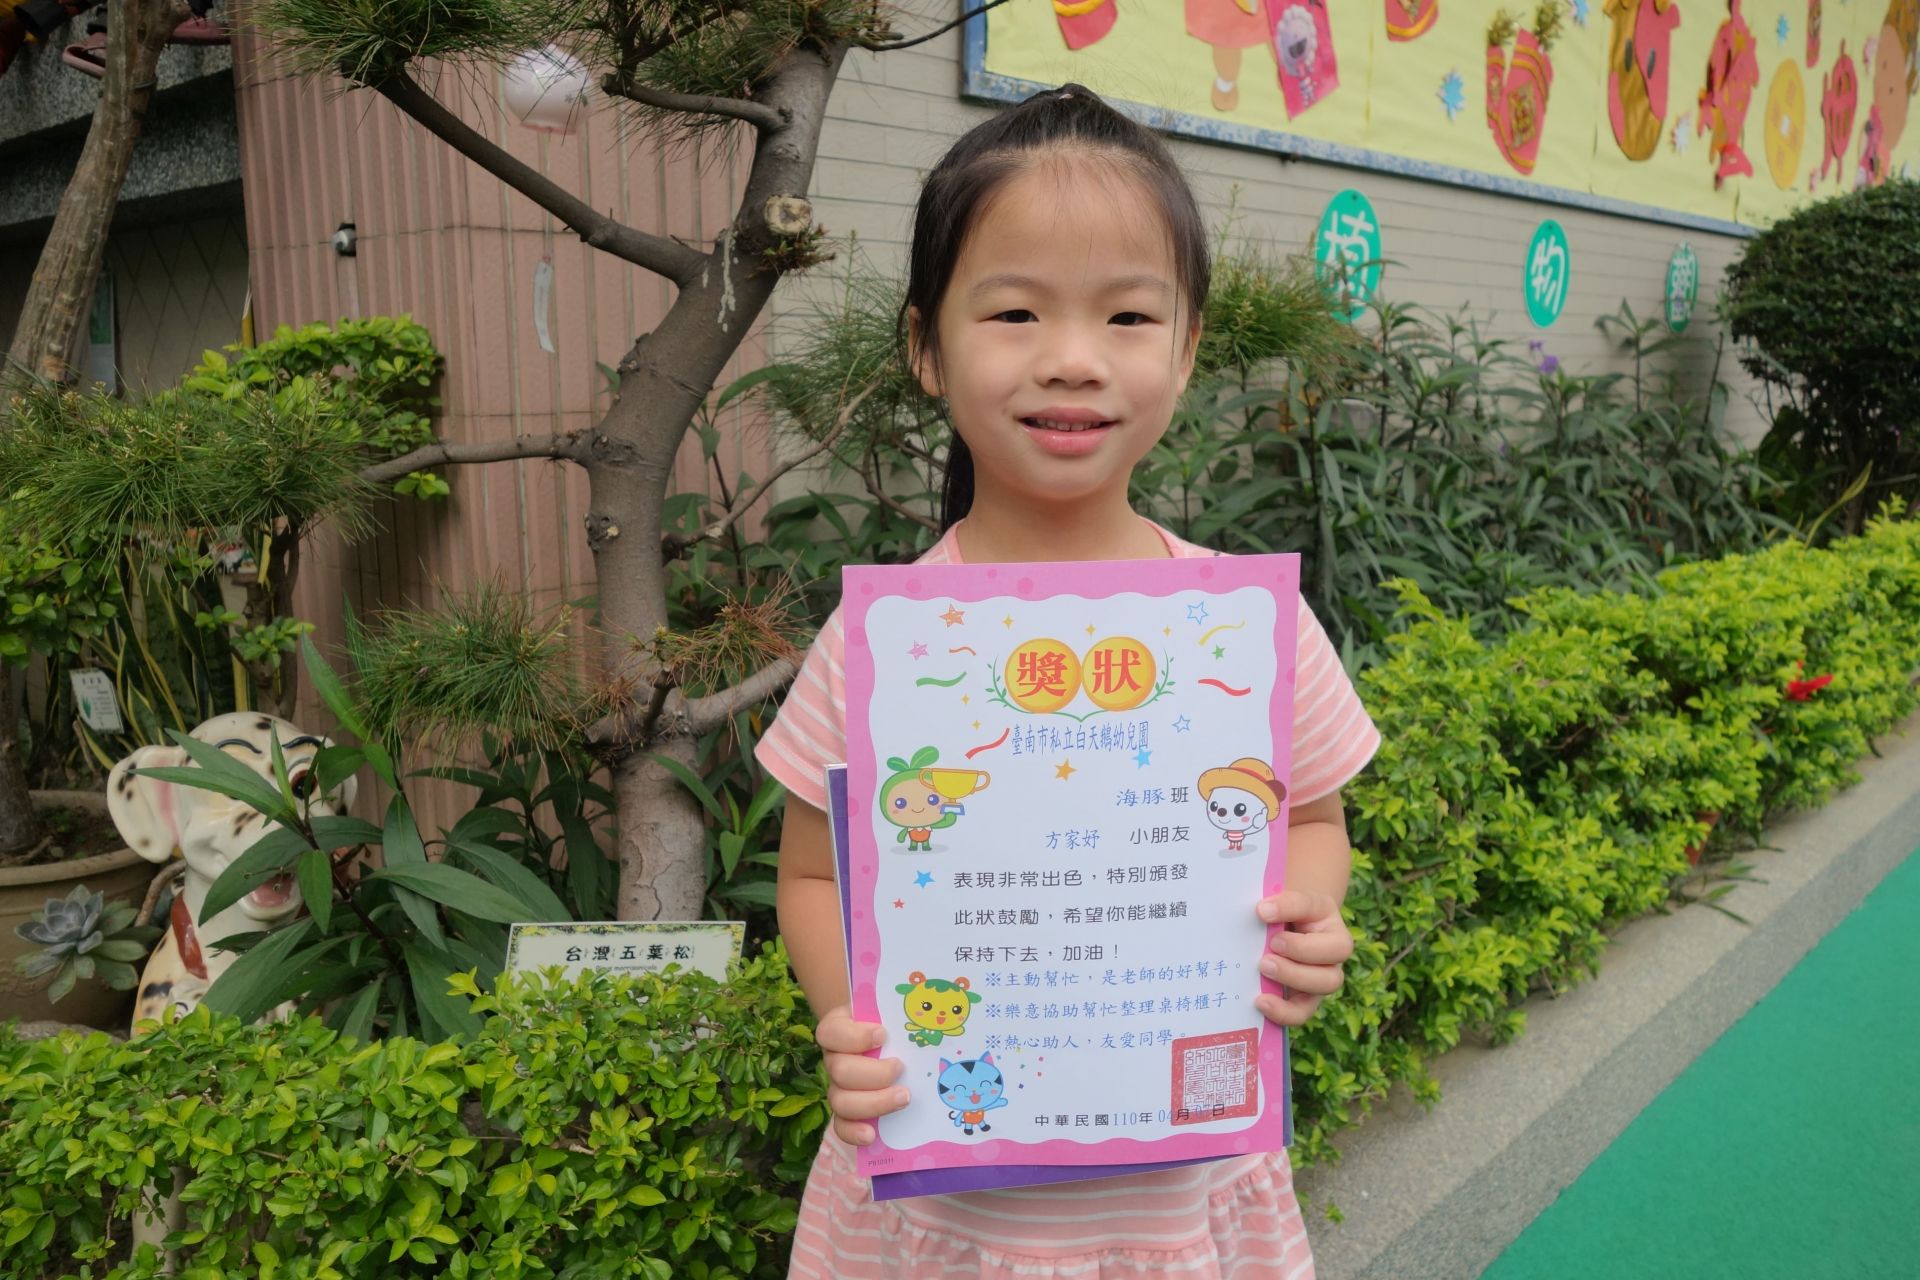 植物園
獎狀
臺南市私立白天鵝幼兒園
海豚班
方家妤 小朋友
表現非常出色，特別頒發
此狀鼓勵，希望你能繼續
保持下去，加油！
※主動幫忙，是老師的好幫手。
※樂意協助幫忙整理桌椅櫃子。
※熱心助人，友愛同學。
中華民國110年04月 日
台灣五葉松